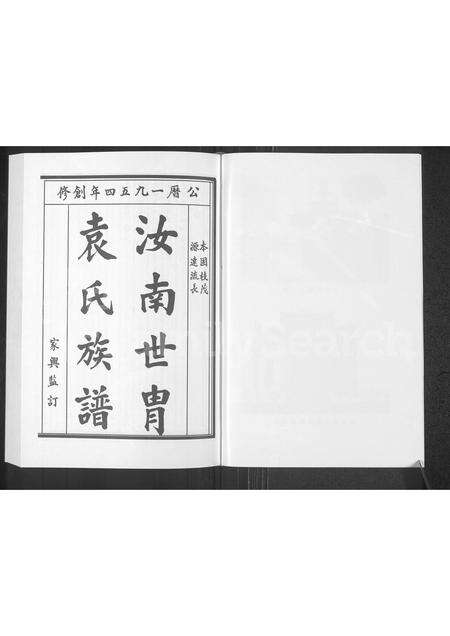 公曆一九五四年創修
本固枝茂
源遠流長
汝南世冑
袁氏族譜
家興監訂
FamilySearch